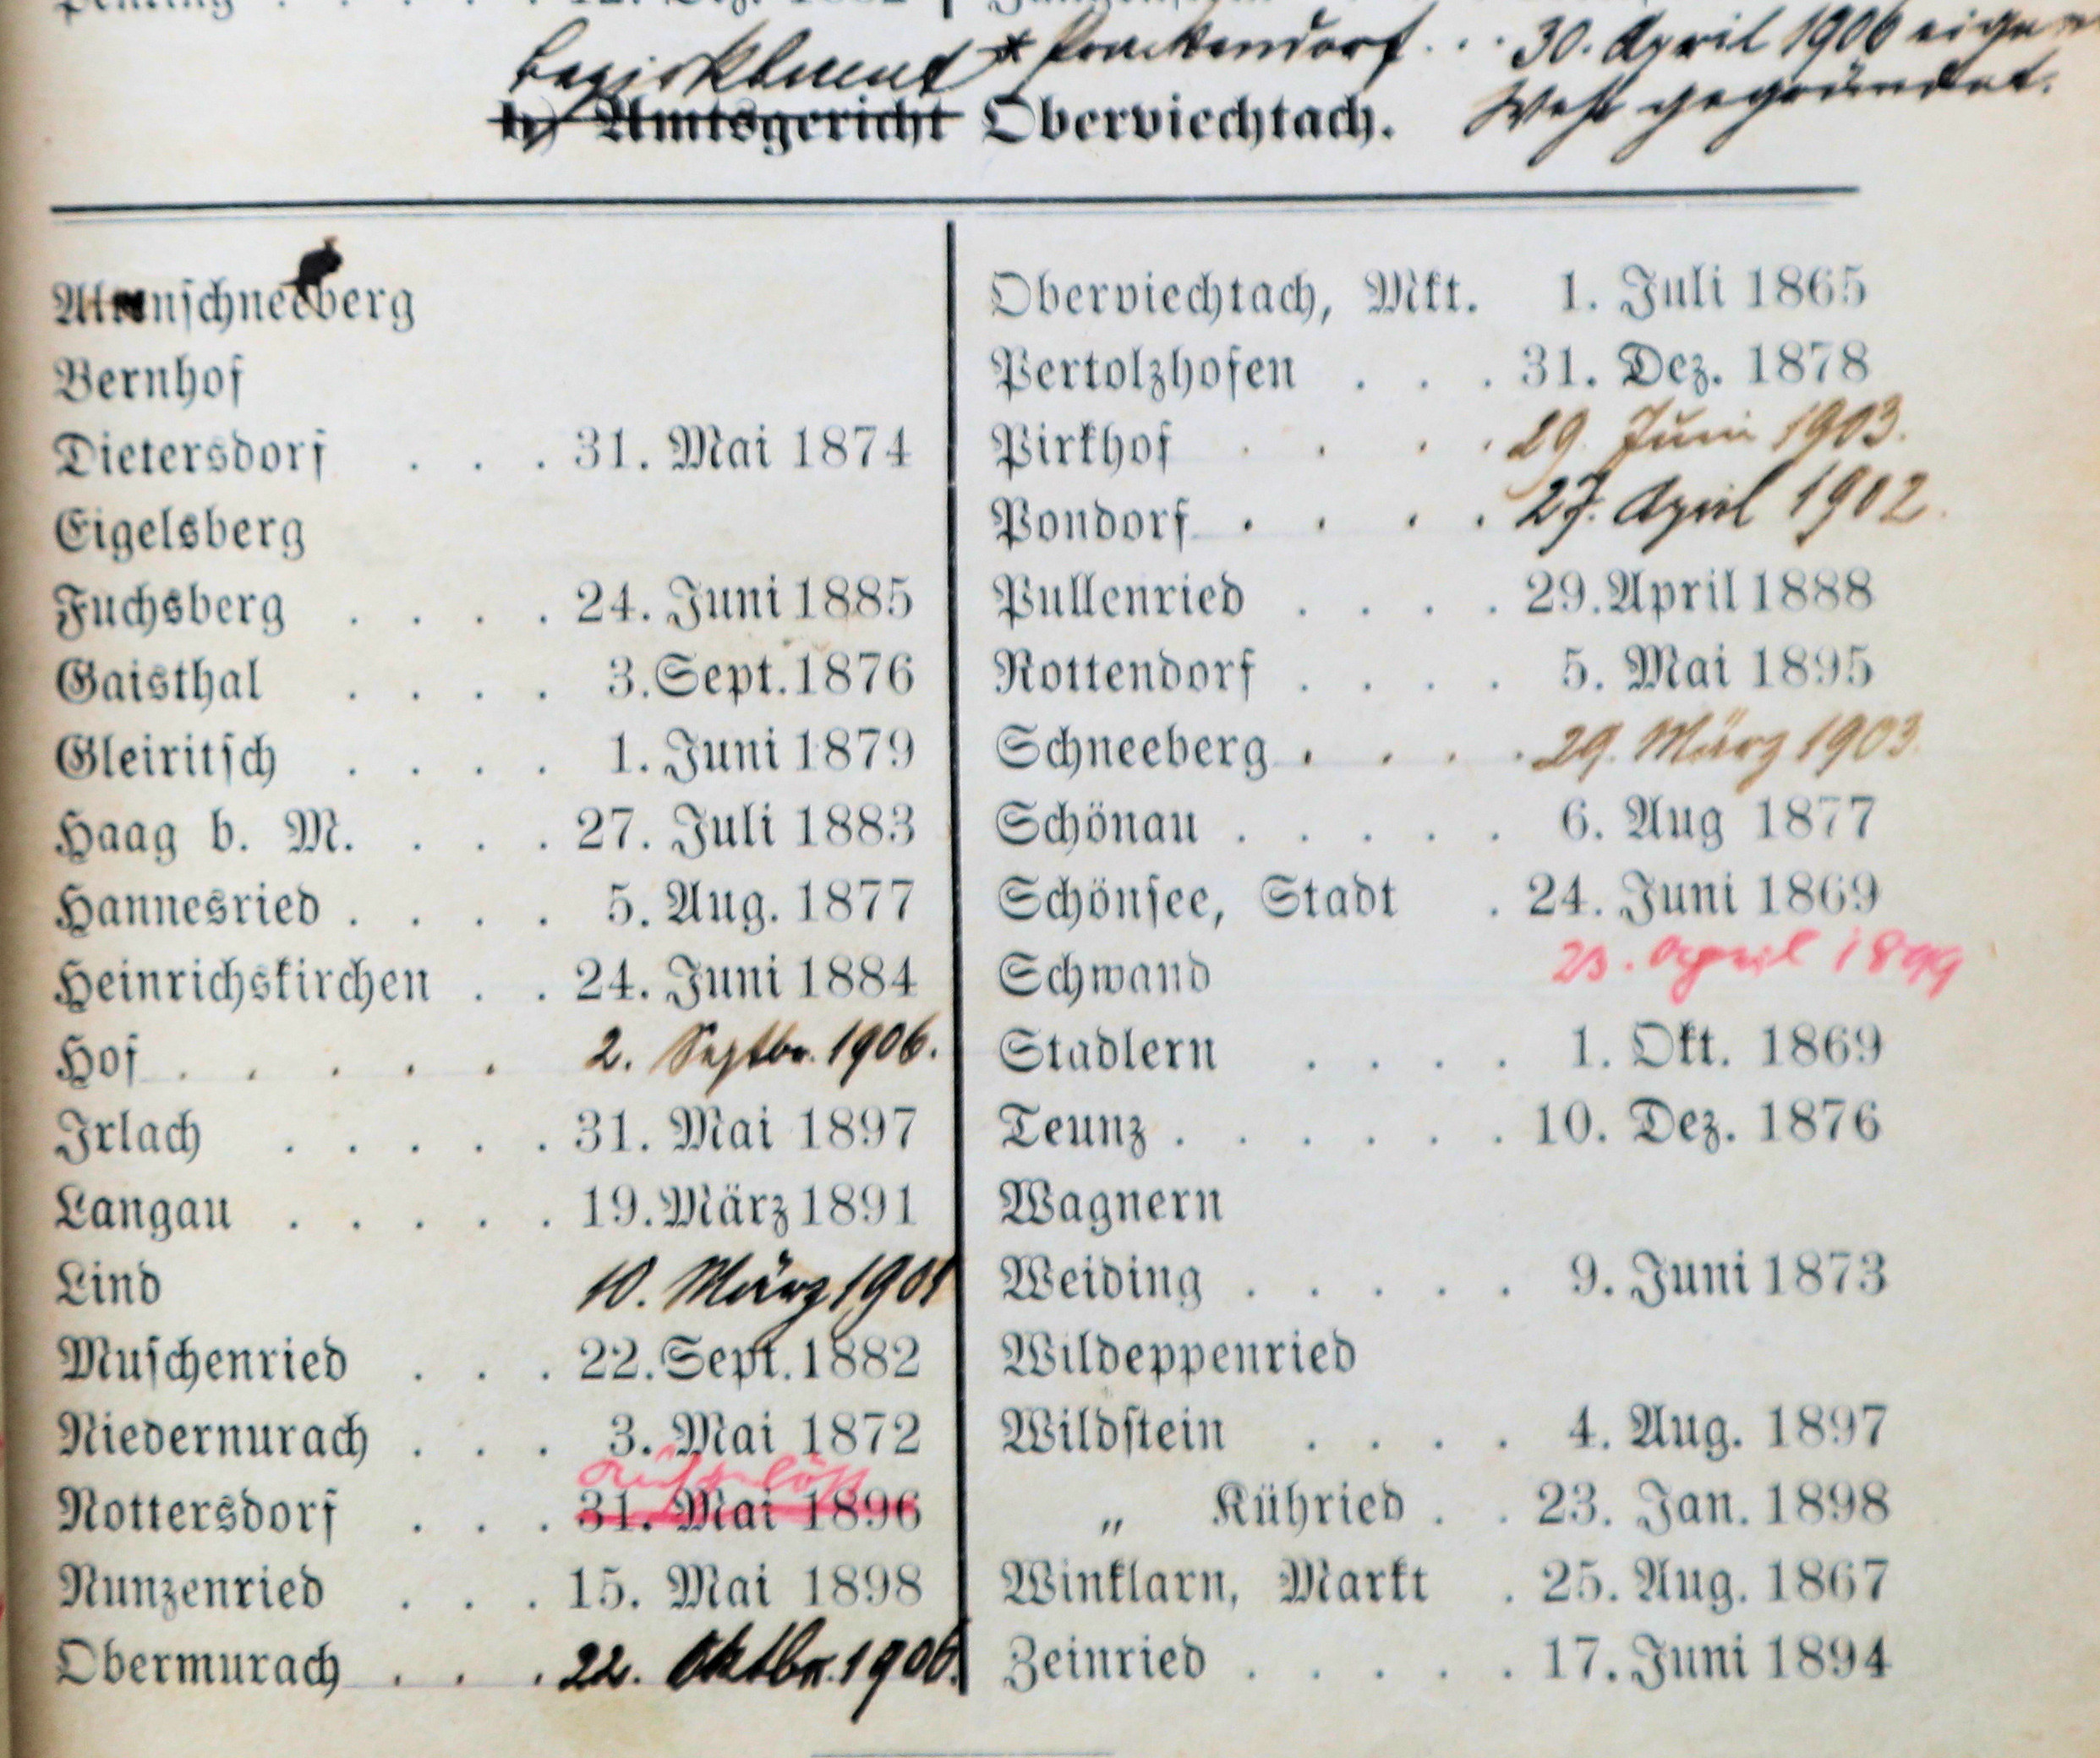 Bezirksamt * Prackendorf . . . 30. April 1906 eigene
Wehr gegründet.
b) Amtsgericht Oberviechtach.
Altenschneeberg
Bernhof
Dietersdorf . . . 31. Mai 1874
Eigelsberg
Fuchsberg . . . . 24. Juni 1885
Gaisthal . . . . 3. Sept. 1876
Gleiritsch . . . . 1. Juni 1879
Haag b. M. . . . 27. Juli 1883
Hannesried . . . . 5. Aug. 1877
Heinrichskirchen . . 24. Juni 1884
Hof . . . . . . 2. Septbr. 1906.
Irlach . . . . . 31. Mai 1897
Langau . . . . . 19. März 1891
Lind 10. März 1901
Muschenried . . . 22. Sept. 1882
Niedernurach . . . 3. Mai 1872
aufgelöst
Nottersdorf . . . 31. Mai 1896
Nunzenried . . . 15. Mai 1898
Obermurach . . . 22. Oktbr. 1906.
Oberviechtach, Mkt. 1. Juli 1865
Pertolzhofen . . . 31. Dez. 1878
Pirkhof . . . . 29. Juni 1903.
Pondorf . . . . 27. April 1902.
Pullenried . . . . 29. April 1888
Rottendorf . . . . 5. Mai 1895
Schneeberg . . . . 29. März 1903.
Schönau . . . . . 6. Aug 1877
Schönsee, Stadt . 24. Juni 1869
Schwand 23. April 1899
Stadlern . . . . 1. Okt. 1869
Teunz . . . . . . 10. Dez. 1876
Wagnern
Weiding . . . . . 9. Juni 1873
Wildeppenried
Wildstein . . . . 4. Aug. 1897
„ Kühried . . 23. Jan. 1898
Winklarn, Markt . 25. Aug. 1867
Zeinried . . . . . 17. Juni 1894